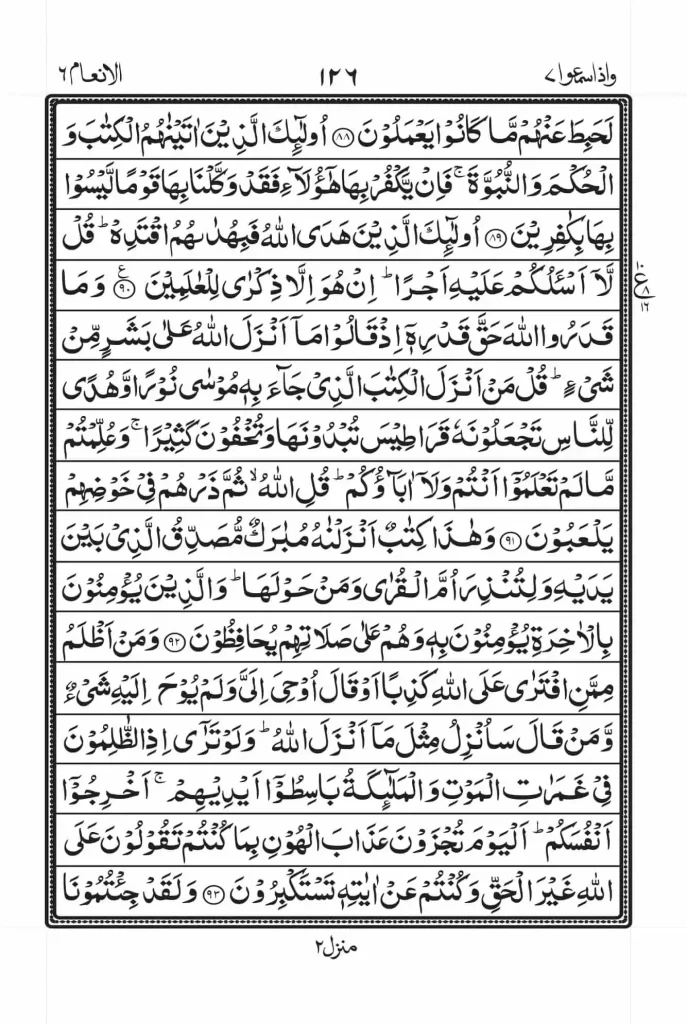 واذاسمعوا ٧ ١٢٦ الانعام ٦
لَحَبِطَ عَنْهُمْ مَّا كَانُوْا يَعْمَلُوْنَ ﴿۸۸﴾ اُولٰٓئِكَ الَّذِيْنَ اٰتَيْنٰهُمُ الْكِتٰبَ وَ
الْحُكْمَ وَالنُّبُوَّةَ ۚ فَاِنْ يَّكْفُرْ بِهَا هٰٓؤُلَآءِ فَقَدْ وَكَّلْنَا بِهَا قَوْمًا لَّيْسُوْا
بِهَا بِكٰفِرِيْنَ ﴿۸۹﴾ اُولٰٓئِكَ الَّذِيْنَ هَدَى اللّٰهُ فَبِهُدٰىهُمُ اقْتَدِهْ ؕ قُلْ
لَّاۤ اَسْـَٔلُكُمْ عَلَيْهِ اَجْرًا ؕ اِنْ هُوَ اِلَّا ذِكْرٰى لِلْعٰلَمِيْنَ ﴿۹۰﴾ ع وَمَا
ع ٨ ١٢
قَدَرُوا اللّٰهَ حَقَّ قَدْرِهٖۤ اِذْ قَالُوْا مَاۤ اَنْزَلَ اللّٰهُ عَلٰى بَشَرٍ مِّنْ
شَيْءٍ ؕ قُلْ مَنْ اَنْزَلَ الْكِتٰبَ الَّذِيْ جَآءَ بِهٖ مُوْسٰى نُوْرًا وَّهُدًى
لِّلنَّاسِ تَجْعَلُوْنَهٗ قَرَاطِيْسَ تُبْدُوْنَهَا وَتُخْفُوْنَ كَثِيْرًا ۚ وَعُلِّمْتُمْ
مَّا لَمْ تَعْلَمُوْۤا اَنْتُمْ وَلَاۤ اٰبَآؤُكُمْ ؕ قُلِ اللّٰهُ ۙ ثُمَّ ذَرْهُمْ فِيْ خَوْضِهِمْ
يَلْعَبُوْنَ ﴿۹۱﴾ وَهٰذَا كِتٰبٌ اَنْزَلْنٰهُ مُبٰرَكٌ مُّصَدِّقُ الَّذِيْ بَيْنَ
يَدَيْهِ وَلِتُنْذِرَ اُمَّ الْقُرٰى وَمَنْ حَوْلَهَا ؕ وَالَّذِيْنَ يُؤْمِنُوْنَ
بِالْاٰخِرَةِ يُؤْمِنُوْنَ بِهٖ وَهُمْ عَلٰى صَلَاتِهِمْ يُحَافِظُوْنَ ﴿۹۲﴾ وَمَنْ اَظْلَمُ
مِمَّنِ افْتَرٰى عَلَى اللّٰهِ كَذِبًا اَوْ قَالَ اُوْحِيَ اِلَيَّ وَلَمْ يُوْحَ اِلَيْهِ شَيْءٌ
وَّمَنْ قَالَ سَاُنْزِلُ مِثْلَ مَاۤ اَنْزَلَ اللّٰهُ ؕ وَلَوْ تَرٰۤى اِذِ الظّٰلِمُوْنَ
فِيْ غَمَرٰتِ الْمَوْتِ وَالْمَلٰٓئِكَةُ بَاسِطُوْۤا اَيْدِيْهِمْ ۚ اَخْرِجُوْۤا
اَنْفُسَكُمْ ؕ اَلْيَوْمَ تُجْزَوْنَ عَذَابَ الْهُوْنِ بِمَا كُنْتُمْ تَقُوْلُوْنَ عَلَى
اللّٰهِ غَيْرَ الْحَقِّ وَكُنْتُمْ عَنْ اٰيٰتِهٖ تَسْتَكْبِرُوْنَ ﴿۹۳﴾ وَلَقَدْ جِئْتُمُوْنَا
منزل ٢